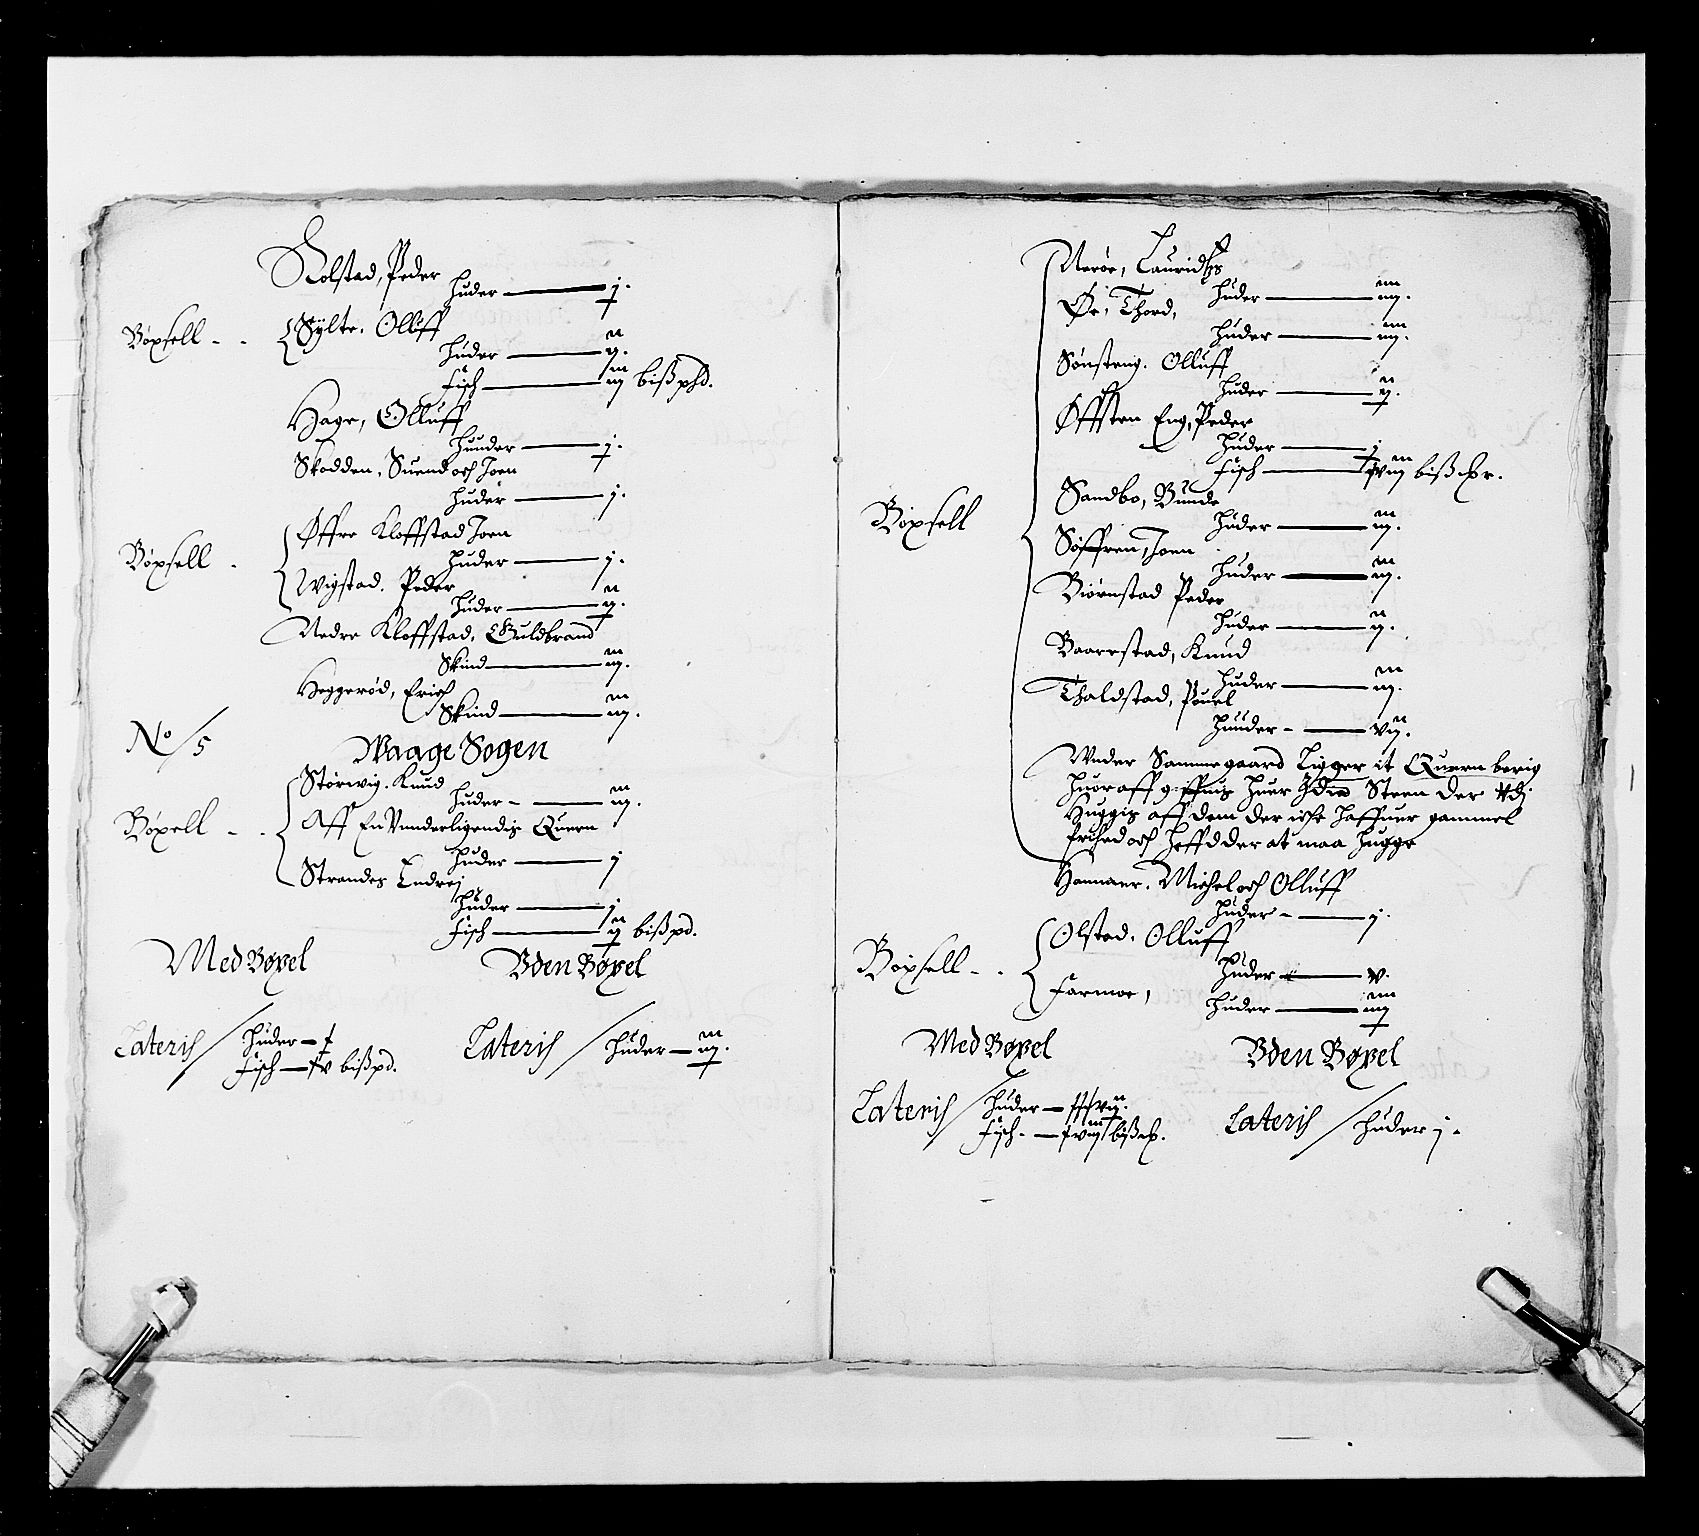 Kolstad, Peder
Huder — j.
Bøxsell - - Sÿlte. Olluff
Huder — ij.
Fisch — iij bißpd.
Hage, Olluff
Huuder — j.
Skodden, Suend och Joen
Huder — j.
Bøxsell - Øffre Kloffstad Joen
Huder — j.
Wigstad. Peder
Huder — ij.
Nedre Kloffstad, Guldbrand
Skind — iij.
Heggerød, Erich
Skind — iij.
No/5 Waage Sogen
Størwig. Knud
Huder — iij.
Bøxell - - Aff En Vnderligendis Quern
Huder — j
Strandes Endrej
Huder — j
Fisch — ij bißpd.
Med Bøxel
Vden Bøxel
Lateris / Huder —
Fisch — bißpd.
Lateris / Huder — iij.
Nerøe, Lauridtz
Huder — iiij.
Øe, Thord,
Huder — iiij.
Sønsteng. Olluff
Huder — ij.
Øffsten Eng, Peder
Huder — j
Fisch — bißpd.
Bøxsell
Sandbo, Bunde
Huder — iij.
Søffren, Joen
Huder — iij.
Biørnstad Peder
Huder — ij.
Baarstad, Knud
Huder — iij.
Thaldstad, Pouel
Huuder — vij.
Vnder Samme gaard Ligger it Quern berig
Huoraff giffuis huer Steen der
Huggis aff dem der icke haffuer gammel
frihed och heffd der at maa hugge
Hammer. Michel och Olluff
Huder — j.
Bøxsell - - Olstad. Olluff
Huder — v.
Farmoe,
Huder — iiij
Med Bøxel
Vden Bøxel
Lateris / Huder —
Fisch —
Lateris / Huder j.